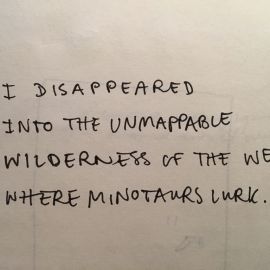 I DISAPPEARED
INTO THE UNMAPPABLE
WILDERNESS OF THE WE
WHERE MINOTAURS LURK.